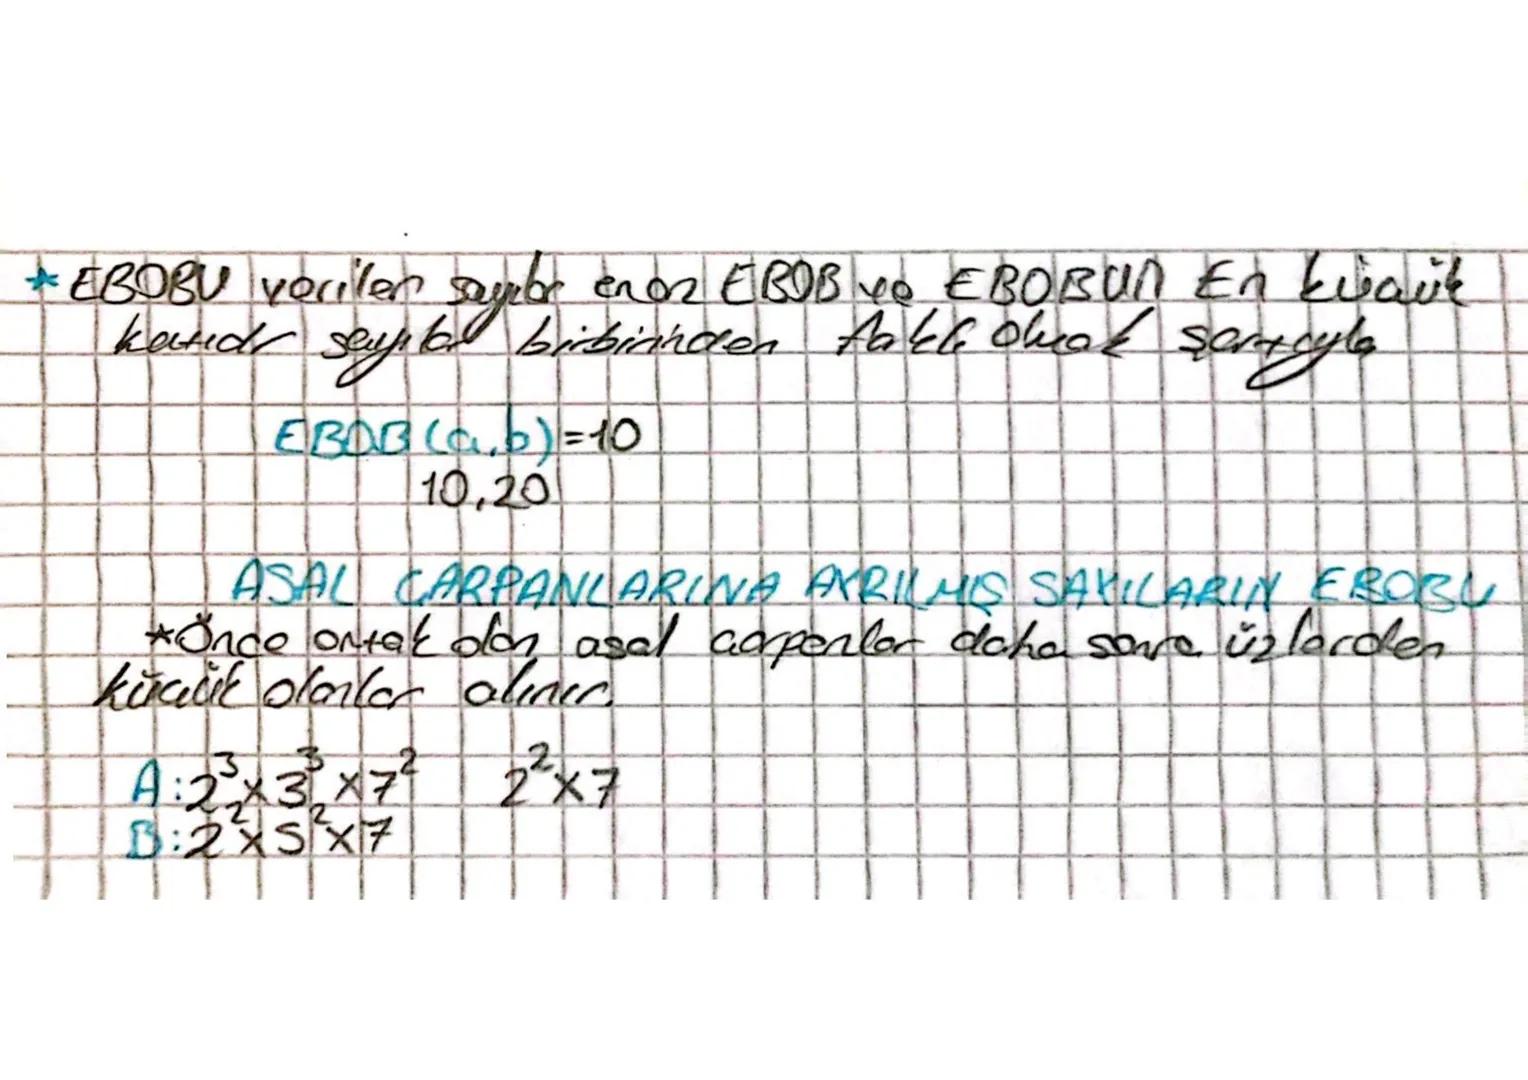 * EBOBU verilen sayılar en az EBOB ve EBOBUN En küçük
katıdır sayılar birbirinden farklı olmak şartıyla
EBOB(a,b)=10
10,20
ASAL ÇARPANLARINA AYRILMIŞ SAYILARIN EBOBU
*Önce ortak olan asal çarpanlar daha sonra üzlerden
küçük olanlar alınır.
A:2³x3³x7² 2²x7
B:2²x5²x7